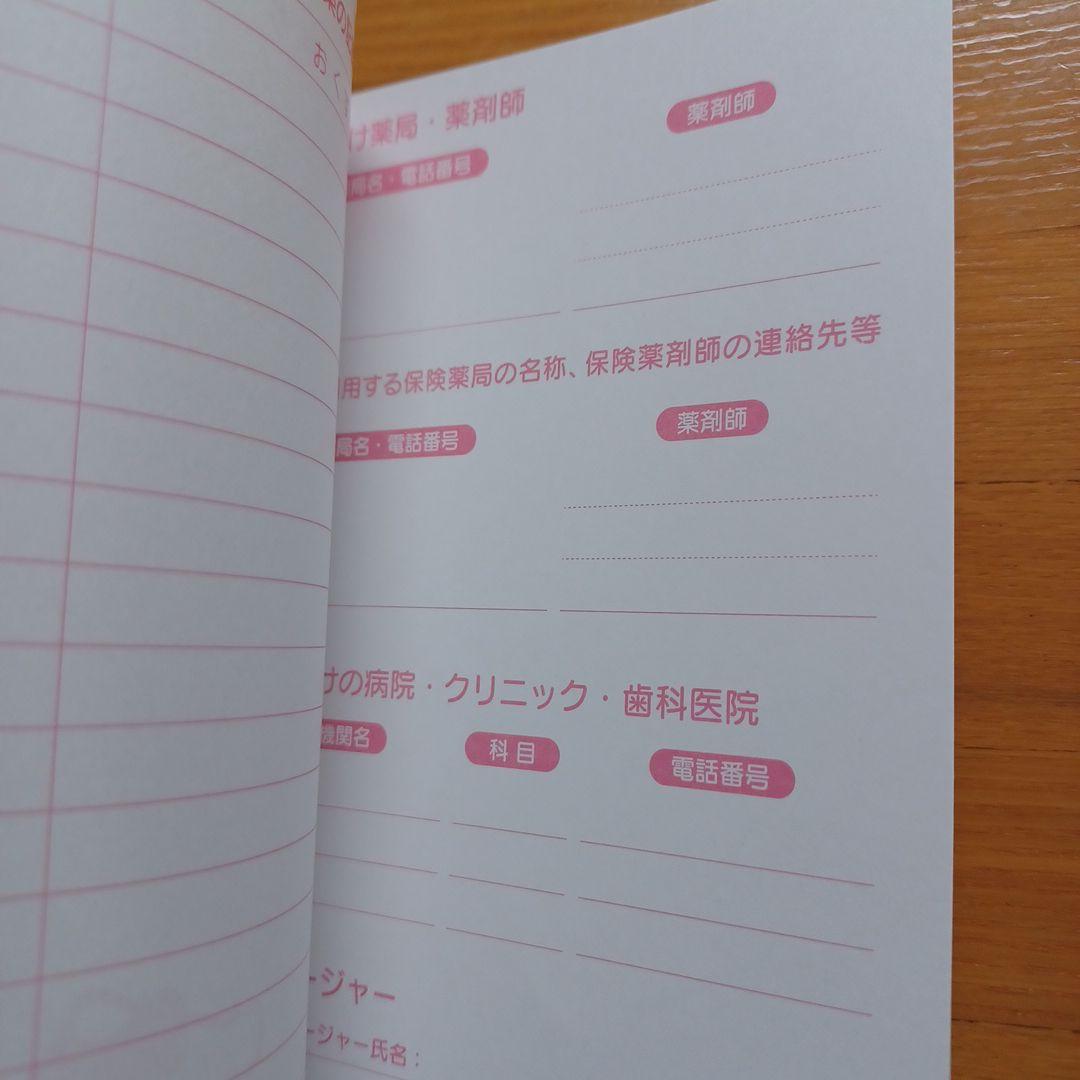 おく
け薬局・薬剤師
局名・電話番号
薬剤師
用する保険薬局の名称、保険薬剤師の連絡先等
局名・電話番号
薬剤師
けの病院・クリニック・歯科医院
機関名
科目
電話番号
ージャー
ージャー氏名：